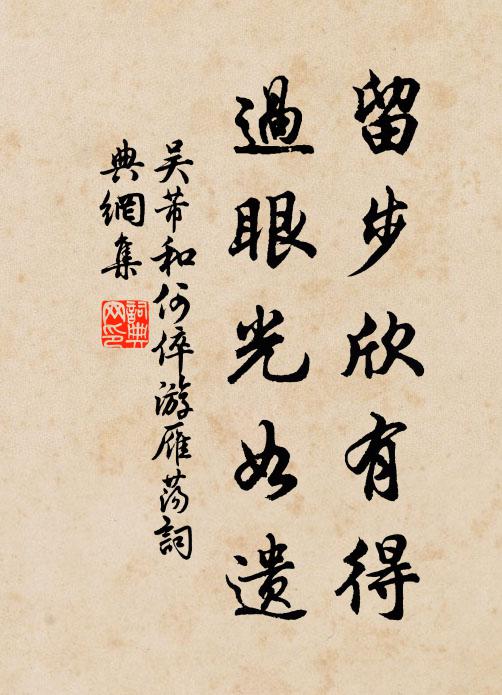 留步欣有得
過眼光如遗
吴芾和何倅游雁荡詞
典網集
詞典
网印